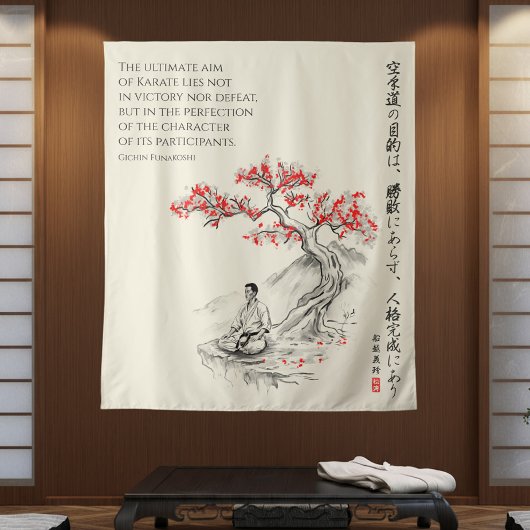 The ultimate aim
of Karate lies not
in victory nor defeat,
but in the perfection
of the character
of its participants.
Gichin Funakoshi
空手道の目的は、勝敗にあらず、人格完成にあり
船越義珍